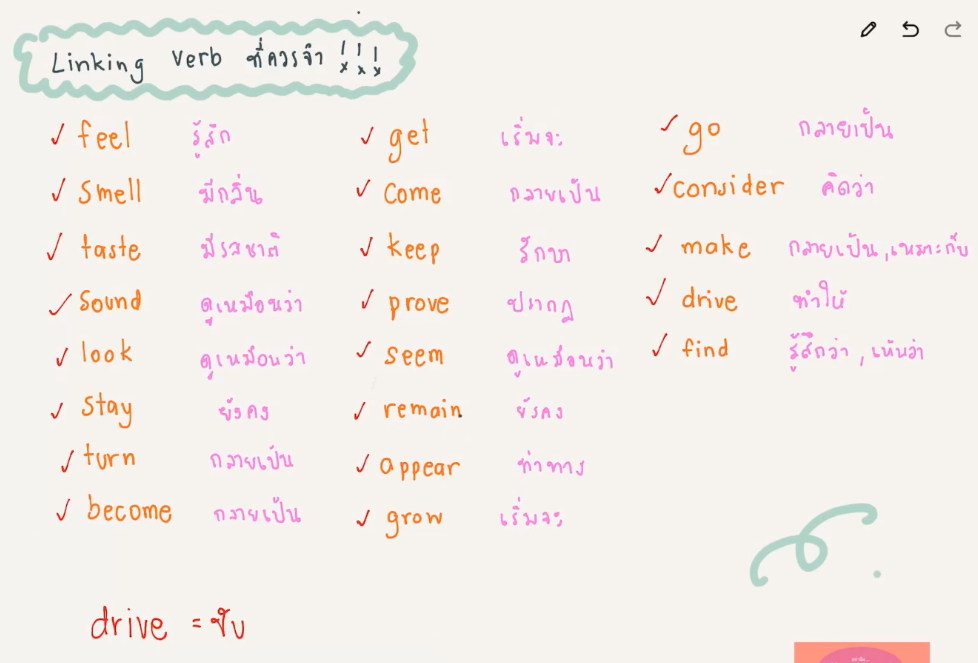 Linking verb ที่ควรจำ !!!
✓ feel รู้สึก
✓ smell มีกลิ่น
✓ taste มีรสชาติ
✓ sound ดูเหมือนว่า
✓ look ดูเหมือนว่า
✓ stay ยังคง
✓ turn กลายเป็น
✓ become กลายเป็น
✓ get เริ่มจะ
✓ come กลายเป็น
✓ keep รักษา
✓ prove ปรากฏ
✓ seem ดูเหมือนว่า
✓ remain ยังคง
✓ appear ท่าทาง
✓ grow เริ่มจะ
✓ go กลายเป็น
✓ consider คิดว่า
✓ make กลายเป็น, เหมาะกับ
✓ drive ทำให้
✓ find รู้สึกว่า, เห็นว่า
drive = ขับ